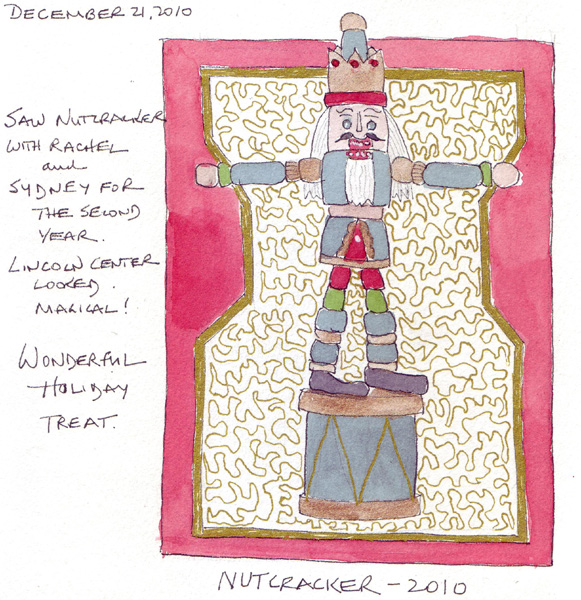 DECEMBER 21, 2010
SAW NUTCRACKER
WITH RACHEL
and
SYDNEY FOR
THE SECOND
YEAR.
LINCOLN CENTER
LOOKED.
MAGICAL!
WONDERFUL
HOLIDAY
TREAT.
NUTCRACKER - 2010